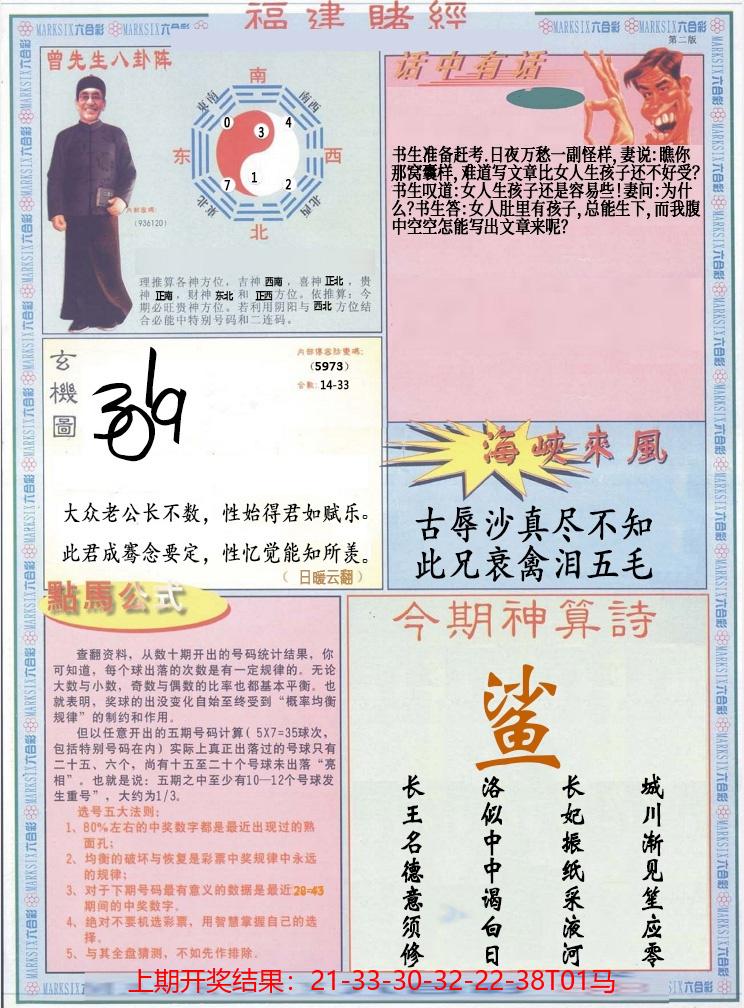 福建賭經
MARKSIX六合彩
第二版
曾先生八卦阵
南
東南
南西
0
3
4
东
西
7
1
2
東北
北西
北
内部密碼：
(936120)
理推算各神方位，吉神 西南 ，喜神 正北 ，贵
神 正南 ，财神 东北 和 正西 方位。依推算：今
期必旺贵神方位。若利用阴阳与 西北 方位结
合必能中特别号码和二连码。
话中有话
书生准备赶考.日夜万愁一副怪样,妻说:瞧你
那窝囊样,难道写文章比女人生孩子还不好受?
书生叹道:女人生孩子还是容易些!妻问:为什
么?书生答:女人肚里有孩子,总能生下,而我腹
中空空怎能写出文章来呢?
玄機圖
(5973)
合數: 14-33
大众老公长不数，性始得君如赋乐。
此君成骞念要定，性忆觉能知所羡。
（ 日暖云翻 ）
海峽來風
古辱沙真尽不知
此兄衰禽泪五毛
點馬公式
查翻资料，从数十期开出的号码统计结果，你
可知道，每个球出落的次数是有一定规律的。无论
大数与小数，奇数与偶数的比率也都基本平衡。也
就表明，奖球的出没变化自始至终受到“概率均衡
规律”的制约和作用。
但以任意开出的五期号码计算( 5X7=35球次，
包括特别号码在内) 实际上真正出落过的号球只有
二十五、六个，尚有十五至二十个号球未出落“亮
相”。也就是说：五期之中至少有10—12个号球发
生重号”，大约为1/3。
选号五大法则：
1、80%左右的中奖数字都是最近出现过的熟
面孔；
2、均衡的破坏与恢复是彩票中奖规律中永远
的规律；
3、对于下期号码最有意义的数据是最近28-43
期间的中奖数字。
4、绝对不要机选彩票，用智慧掌握自己的选
择。
5、与其全盘猜测，不如先作排除．
今期神算詩
鲨
城川渐见笙应零
长妃振纸采液河
洛似中中谒白日
长王名德意须修
上期开奖结果：21-33-30-32-22-38T01马